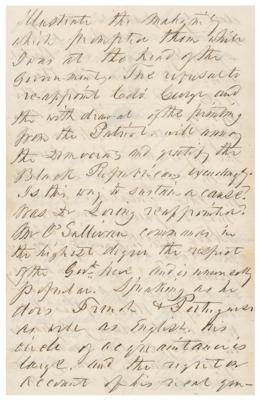 illustrate the malignity
which prompted them while
I was at the head of the
Government. The refusal to
re-appoint Col. George and
the withdrawal of the printing
from the Patriot will annoy
the Democrats and gratify the
Black Republicans exceedingly.
Is this way to sustain a cause?
Was Dr Loring reappointed?
Mr O'Sullivan commands in
the highest degree the respect
of the Govt. here, and is unusually
popular. Speaking as he
does French & Portuguese
as wide as English, his
circle of acquaintance is
large, and the right on
account of his near gen-